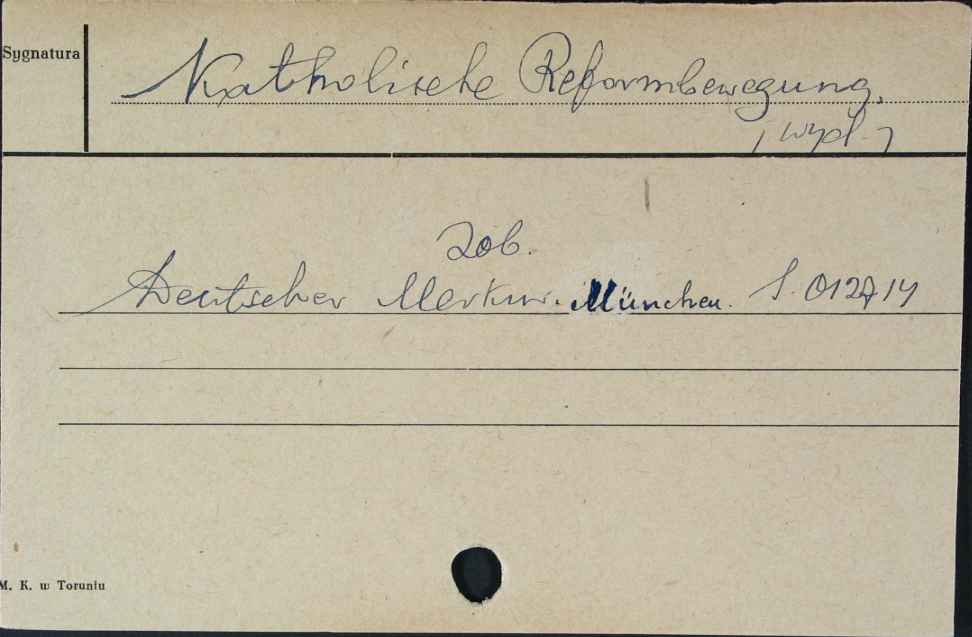 Sygnatura
Katholische Reformbewegung.
/ wypl. /
Zob.
Deutscher Merkur. München. S. 012714
M. K. w Toruniu